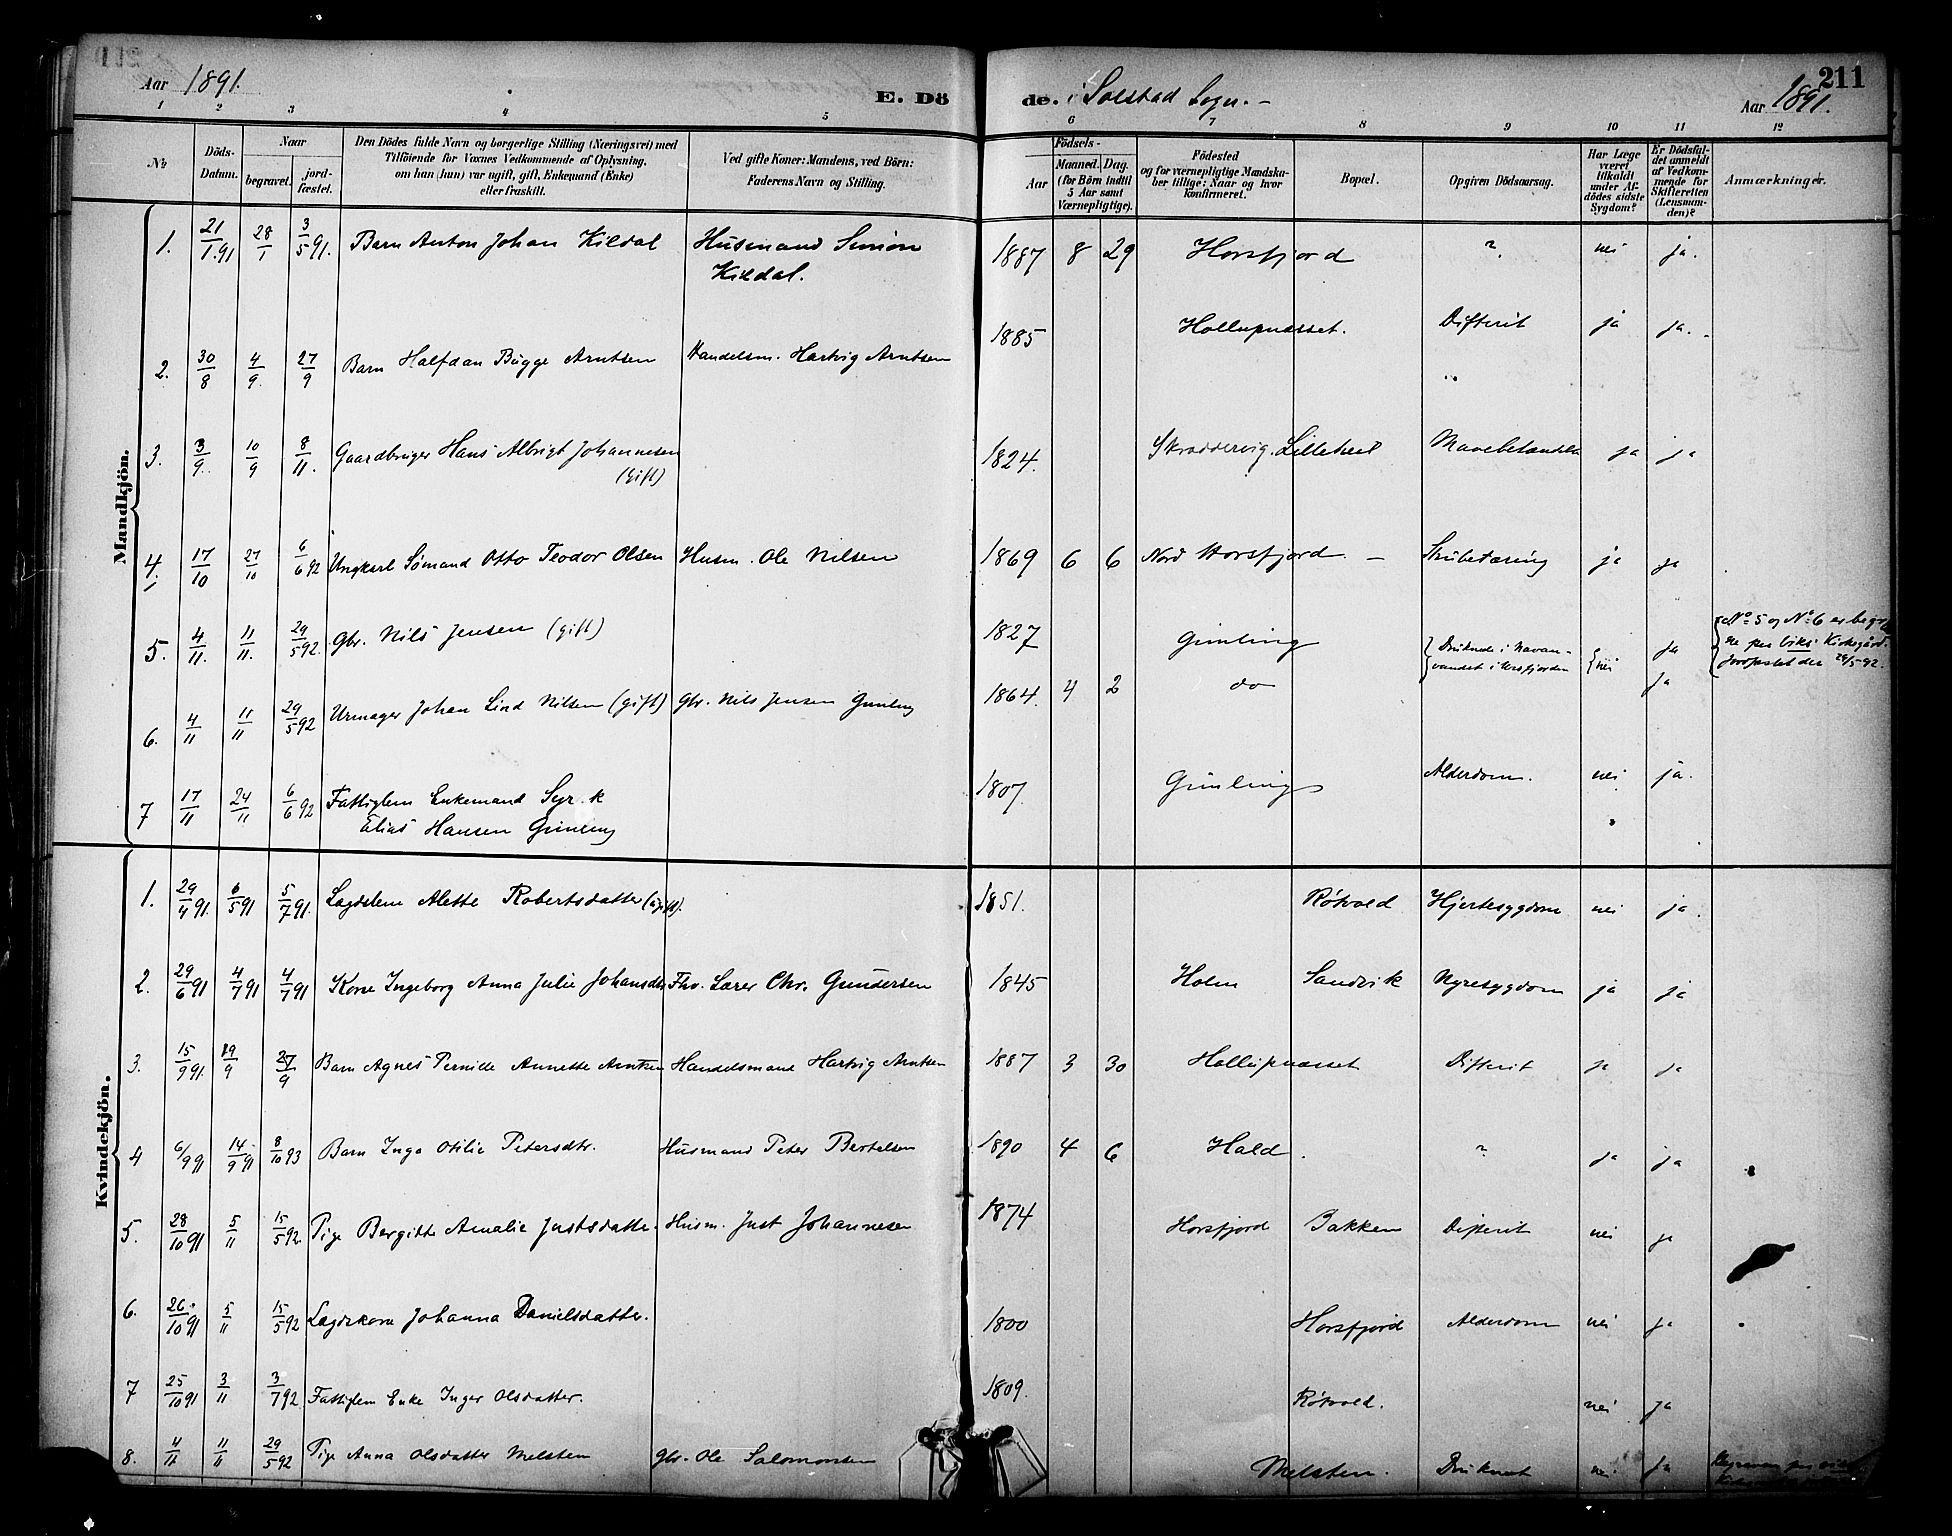 Aar 1891.
E. Döde. i Solstad Sogn.
Aar 1891.
211
1 2 3 4 5 6 7 8 9 10 11 12
No
Döds-Datum.
Naar
begravet.
jord-fæstet.
Den Dödes fulde Navn og borgerlige Stilling (Næringsvei) med
Tilföiende for Voxnes Vedkommende af Oplysning,
om han (hun) var ugift, gift, Enkemand (Enke)
eller fraskilt.
Ved gifte Koner: Mandens, ved Börn:
Faderens Navn og Stilling.
Födsels-
Aar
Maaned. Dag.
(for Börn indtil
5 Aar samt
Værnepligtige).
Födested
og for værnepligtige Mandska-
ber tillige: Naar og hvor
konfirmeret.
Bopæl.
Opgiven Dödsaarsag.
Har Læge
været
tilkaldt
under Af-
dödes sidste
Sygdom?
Er Dödsfal-
det anmeldt
af Vedkom-
mende for
Skifteretten
(Lensman-
den)?
Anmærkninger.
Mandkjön.
1. 21/1 91 28/1 3/5 91. Barn Anton Johan Kildal Husmand Simon Kildal. 1887 8 29 Horsfjord ? nei ja.
2. 30/8 4/9 27/9 Barn Halfdan Bugge Arntsen Handelsm. Hartvig Arntsen 1885 Hollupnæsset. Difterit ja ja.
3. 3/9 10/9 8/11. Gaardbruger Hans Albrigt Johannesen (gift) 1824. Skraddervig. ja ja
4. 17/10 27/10 6/6 92 Ungkarl Sømand Otto Teodor Olsen Husm. Ole Nilsen 1869 6 6 Nord Horsfjord. — Strubetæring ja ja
5. 4/11. 11/11. 29/5 92. Gbr. Nils Jensen (gift) 1827 Gimling Druknede i nei ja No 5 og No 6 er
6. 4/11 11/11 29/5 92 Urmager Johan Lind Nilsen (gift) Gbr. Nils Jensen Gimling 1864. 4 2 do ja
7 17/11 24/11 6/6 92 Fattiglem Enkemand
Elias Hansen Gimling 1807. Gimling Alderdom. nei ja.
Kvindekjön.
1. 29/4 91. 6/5 91 5/7 91. Lægdslem Alette Robertsdatter (ugift). 1851. Røkvold Hjertesygdom nei ja.
2. 29/6 91 4/7 91 4/7 91 Kone Ingeborg Anna Julie Johansdtr Fhv. Lærer Chr. Gundersen 1845 Holm Sandvik Nyresygdom ja ja
3. 15/9 91. 19/9 27/9 Barn Agnes Pernide Annette Arntzen Handelsmand Hartvig Arntzen 1887 3 30 Hollupnæsset Difterit ja ja
4 6/9 91 14/9 91 8/10 93 Barn Inga Otilie Petersdtr. Husmand Peter Bertelsen 1890 4 6 Hald. ? ja ja
5. 28/10 91 5/11 15/5 92. Pige Bergitte Amalie Justsdatter Husm. Just Johannesen 1874 Horsfjord Bakken Difterit nei ja
6. 26/10 91 5/11 15/5 92 Lægdskone Johanna Danielsdatter. 1800 Horsfjord Alderdom nei ja
7 25/10 91 3/11 3/7 92 Fattiglem Enke Inger Olsdatter. 1809. Røkvold. nei ja
8. 4/11 11/11 29/5 92 Pige Anna Olsdatter Melsten gbr. Ole Salomonsen Melsten. Druknet nei ja